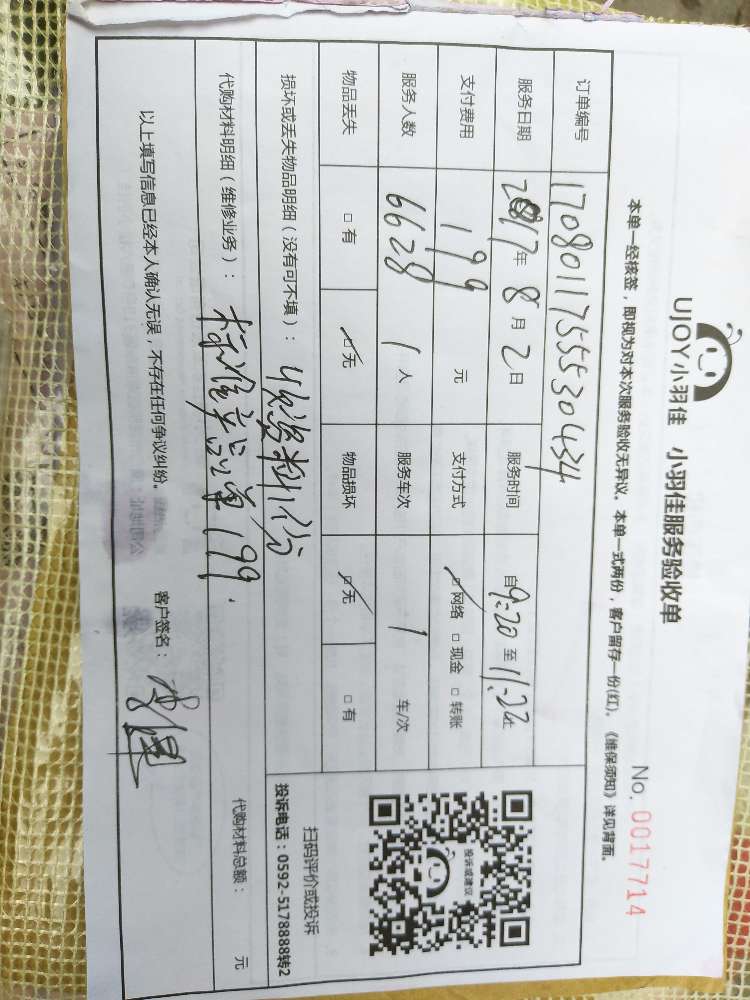 UJOY小羽佳 小羽佳服务验收单
No. 0017714
本单一经核签，即视为对本次服务验收无异议。本单一式两份，客户留存一份(红)。《维保须知》详见背面。
订单编号 170801175553 0434
服务日期 2017年 8月 2日 服务时间 自9:20至11:22
支付费用 199 元 支付方式 ☑网络 □现金 □转账
服务人数 6628 1人 服务车次 1 车/次
物品丢失 □有 ☑无 物品损坏 ☑无 □有
投诉或建议
扫码评价或投诉
投诉电话：0592-5178888转2
损坏或丢失物品明细（没有可不填）： 收资料1份
代购材料明细（维修业务）： 标准单品单199. 代购材料总额： 元
以上填写信息已经本人确认无误，不存在任何争议纠纷。 客户签名：